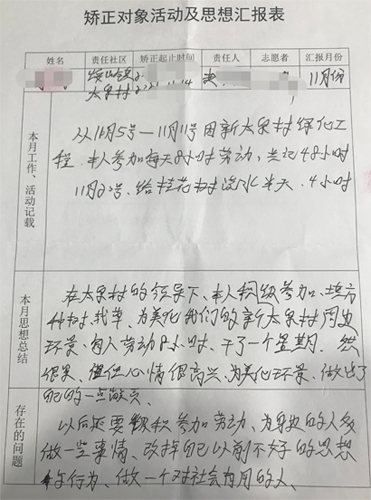 矫正对象活动及思想汇报表
姓名 责任社区 矫正起止时间 责任人 志愿者 汇报月份
太泉村 11月份
本月工作、活动记载
从11月5号—11月11号因新太泉村绿化工
程.本人参加每天8小时劳动,共记48小时
11月20号.给桂花树浇水半天.4小时
本月思想总结
在太泉村的领导下、本人积极参加、地方
种树、找草、为美化我们的新太泉村周边
环景、每人劳动8小时、干了一个星期.然
很累、但但心情很高兴、为美化环景、做出了
自己的一点献.
存在的问题
以后还要积极参加劳动、为身边的人多
做一些事情、改掉自己以前不好的思想
与行为、做一个对社会有用的人、